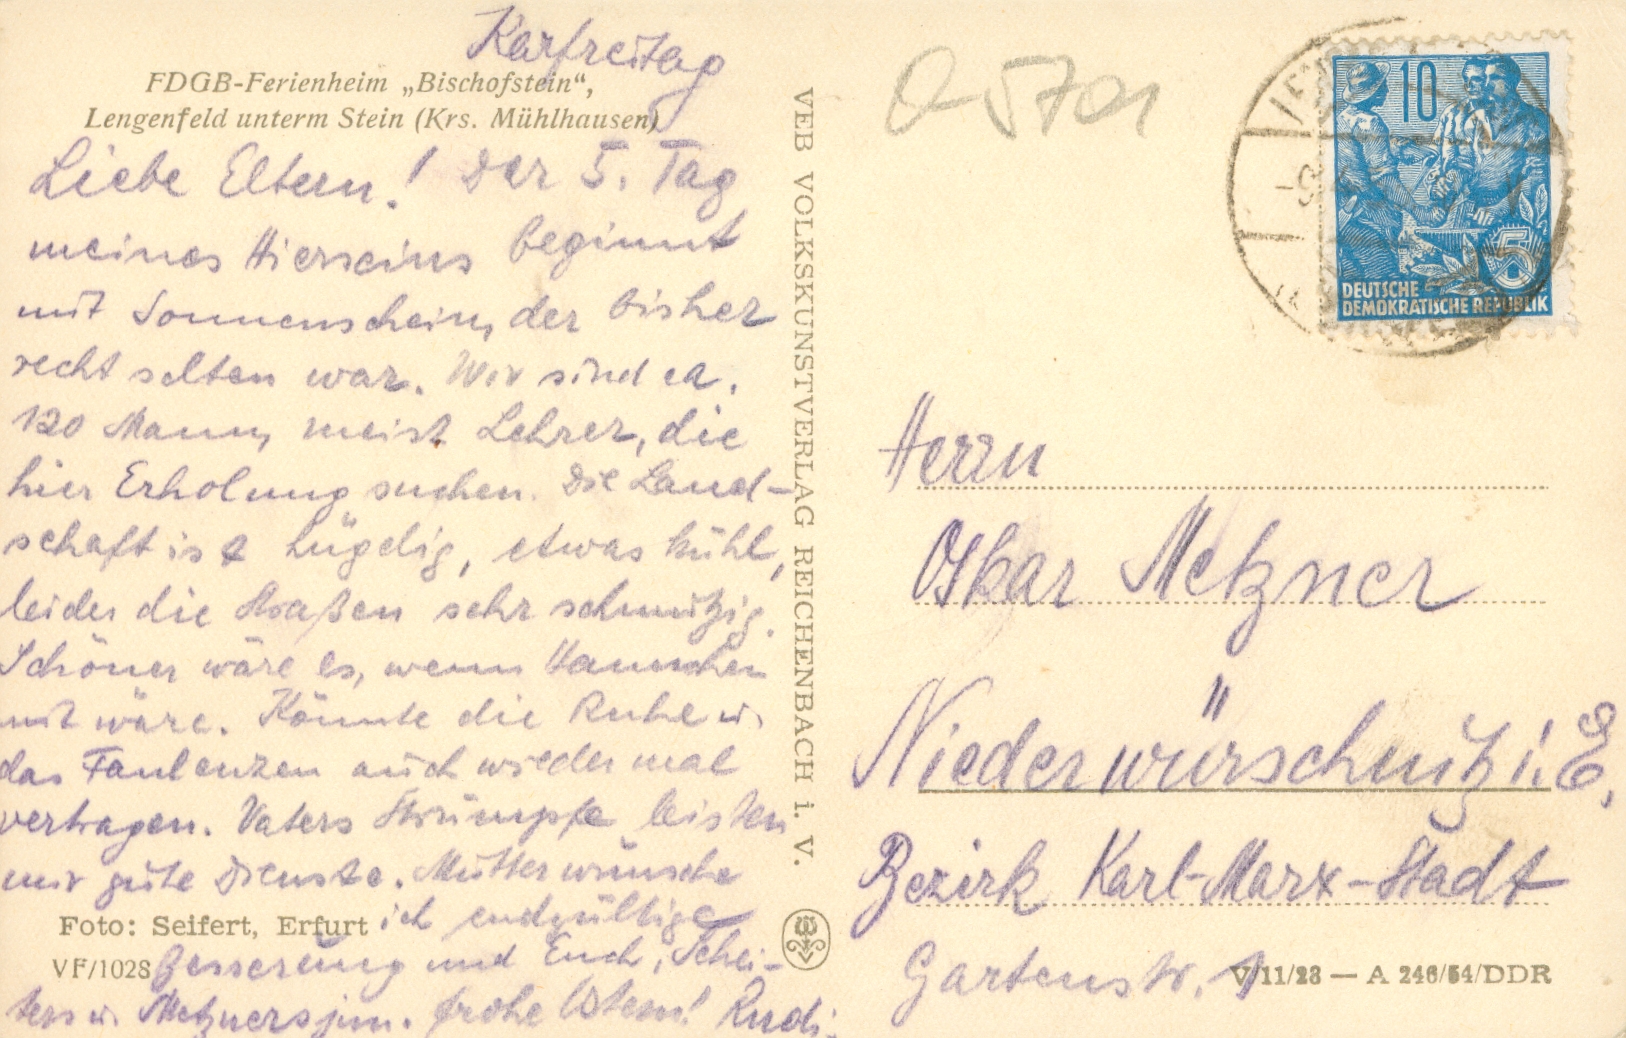 Karfreitag
FDGB-Ferienheim „Bischofstein“,
Lengenfeld unterm Stein (Krs. Mühlhausen)
Liebe Eltern! Der 5. Tag
meines Hierseins beginnt
mit Sonnenschein, der bisher
recht selten war. Wir sind ca.
120 Mann, meist Lehrer, die
hier Erholung suchen. Die Land-
schaft ist hügelig, etwas kühl,
leider die Straßen sehr schmutzig.
Schöner wäre es, wenn Hannchen
mit wäre. Könnte die Ruhe u.
das Faulenzen auch wieder mal
vertragen. Vaters Strümpfe leisten
mir gute Dienste. Mutter wünsche
ich endgültige
Besserung und Euch, Schei-
ters u. Metzners jun. frohe Ostern! Rudi.
Foto: Seifert, Erfurt
VF/1028
VEB VOLKSKUNSTVERLAG REICHENBACH i. V.
0 5701
10
5
DEUTSCHE
DEMOKRATISCHE REPUBLIK
Herrn
Oskar Metzner
Niederwürschnitz i. E.
Bezirk Karl-Marx-Stadt
Gartenstr. 1
V 11/28 — A 246/54/DDR